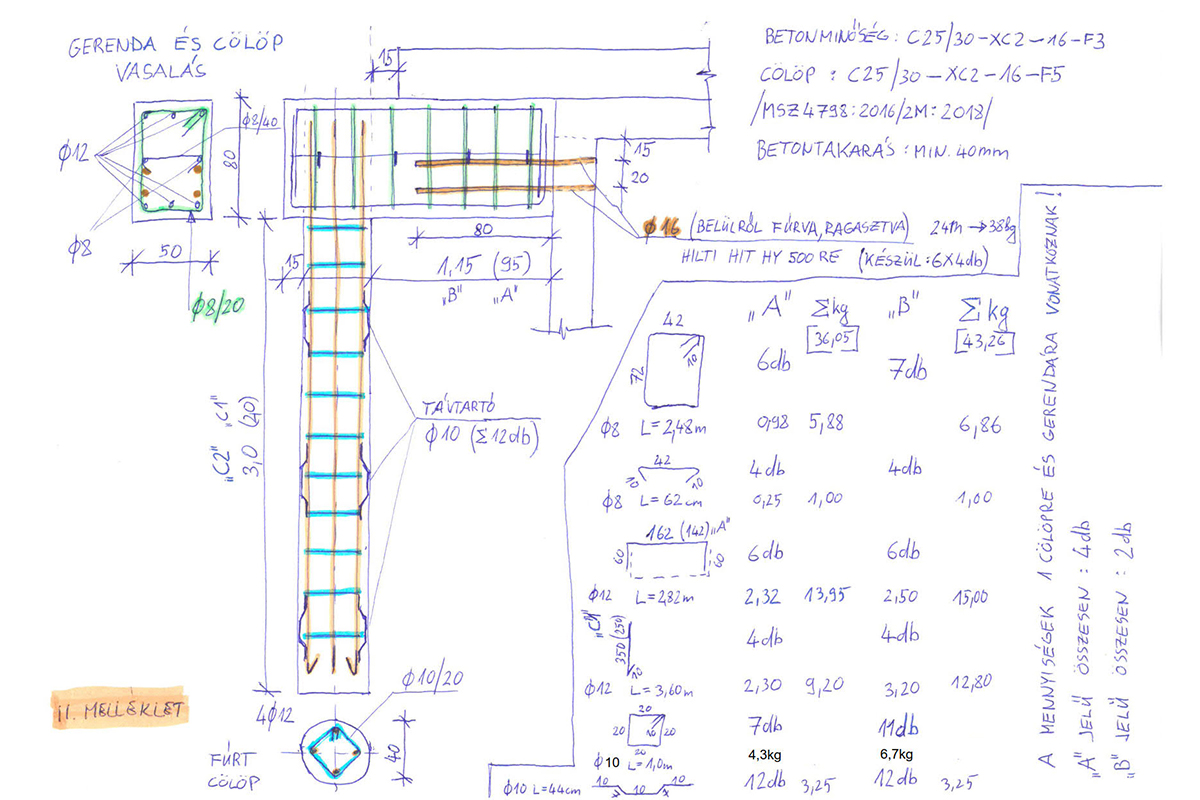 GERENDA ÉS CÖLÖP
VASALÁS
BETONMINŐSÉG: C25/30-XC2-16-F3
CÖLÖP: C25/30-XC2-16-F5
/MSZ 4798:2016/2M:2018/
BETONTAKARÁS: MIN. 40mm
15
ϕ8/40
ϕ12
80
15
20
ϕ8
50
ϕ8/20
80
15
1,15 (95)
„B" „A"
ϕ16 (BELÜLRŐL FÚRVA, RAGASZTVA) 24m → 38kg
HILTI HIT HY 500 RE (KÉSZÜL: 6X4db)
„C2" „C1"
3,0 (2,0)
TÁVTARTÓ
ϕ10 (Σ12db)
„A" Σkg „B" Σkg
36,05 43,26
42
72
10
6db 7db
ϕ8 L=2,48m 0,98 5,88 6,86
42
10 10
4db 4db
ϕ8 L=62cm 0,25 1,00 1,00
162 (142) „A"
60 60
6db 6db
ϕ12 L=2,82m 2,32 13,95 2,50 15,00
„C1"
350 (250)
10
4db 4db
ϕ12 L=3,60m 2,30 9,20 3,20 12,80
20
20 10 20
20
7db 11db
ϕ10 L=1,0m 4,3kg 6,7kg
ϕ10 L=44cm 10 10 10 12db 3,25 12db 3,25
A MENNYISÉGEK 1 CÖLÖPRE ÉS GERENDÁRA VONATKOZNAK!
„A" JELŰ ÖSSZESEN: 4db
„B" JELŰ ÖSSZESEN: 2db
II. MELLÉKLET
ϕ10/20
4ϕ12
40
FÚRT
CÖLÖP